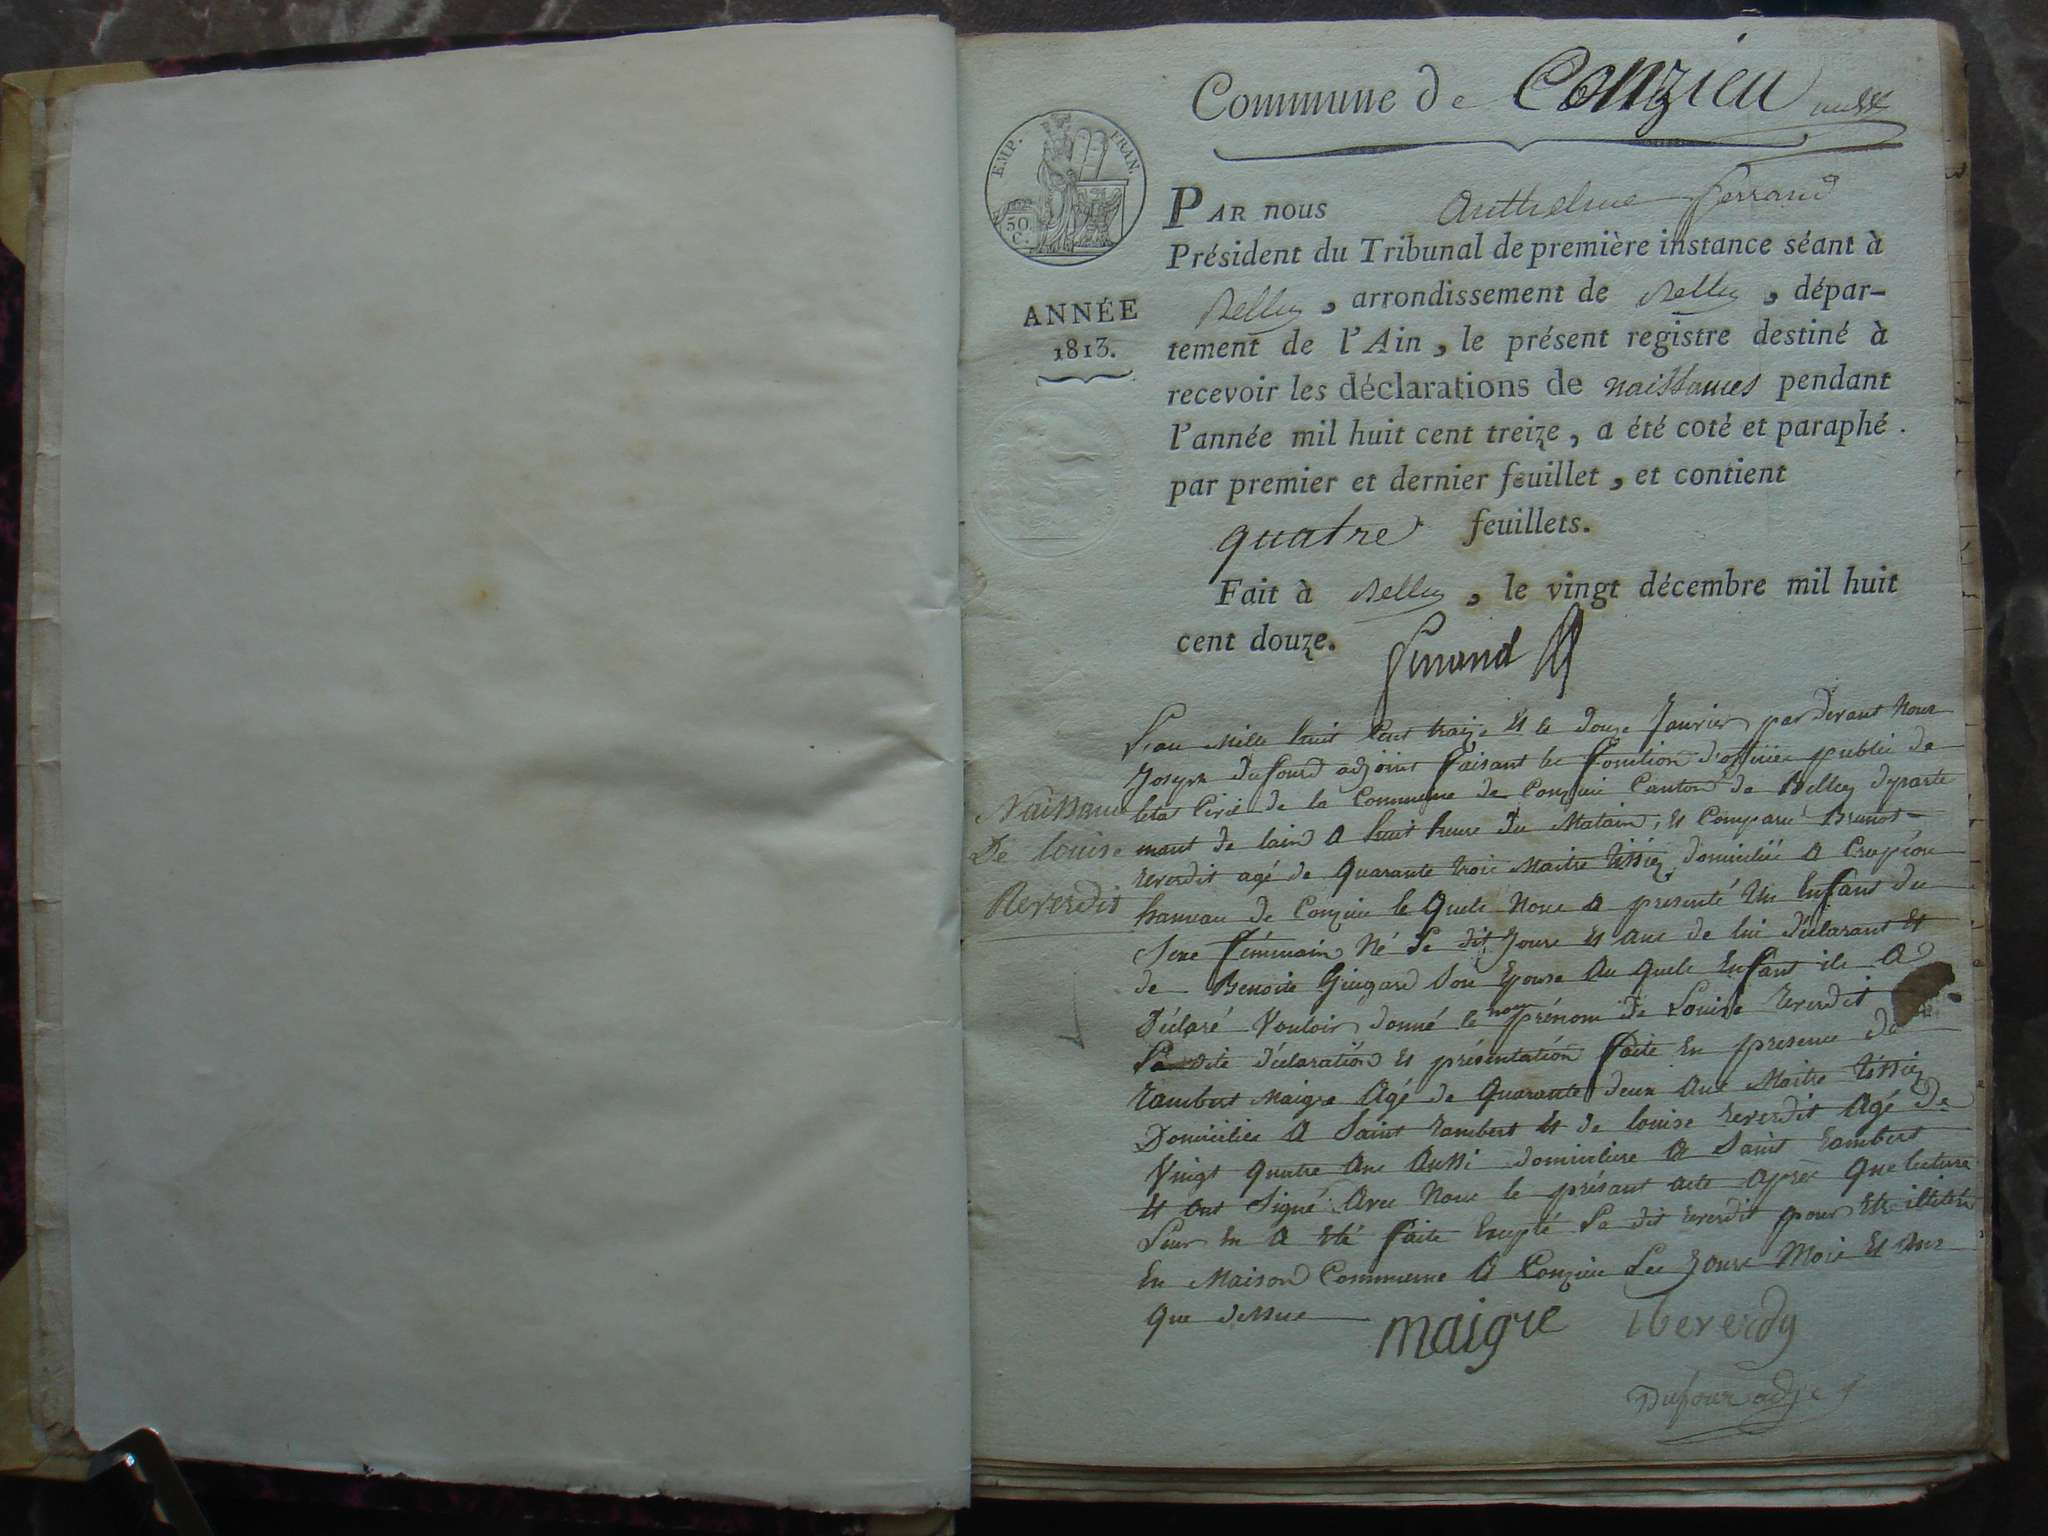 Commune de Conzieu
EMP. FRAN.
50
C.
PAR nous Anthelme Ferrand
Président du Tribunal de première instance séant à
Belley, arrondissement de Belley, dépar-
tement de l'Ain, le présent registre destiné à
recevoir les déclarations de naissances pendant
l'année mil huit cent treize, a été coté et paraphé
par premier et dernier feuillet, et contient
quatre feuillets.
Fait à Belley, le vingt décembre mil huit
cent douze.
Ferrand
ANNÉE
1813.
Naissance
De louise
Reverdit
L'an Mille huit Cent traize Et le douze Janvier par devant Nous
Joseph Dufourd adjoint faisant les fonction d'officier public de
letat Civil de la Commune de Conzieu Canton de Belley départe
mant de lain a huit heure du Matain, Et Comparu Benoit
reverdit agé de Quarante troie Maitre tissier domicilié a Crapéou
hameau de Conzieu le Quele Nous a presenté Un Enfant du
Sexe féminain Né Le dit Jours Et ans de lui déclarant Et
de Benoite Guigard Son Epouse Au Quele Enfant ile A
Déclaré Vouloir donné le nom prénom de Louise reverdit
La dite déclaratión Et présentatión faite En presence de
rambert Maigre Agé de Quarante deux Ans Maitre tissier
Domiciliée A Saint rambert Et de louise reverdit Agé de
Vingt Quatre Ans Aussi domiciliere A Saint rambert
Et ont Signé Avec Nous le présant acte Aprés Que lecture
Leur En A Eté faite Excepté La dit reverdit pour Etre illiteré
En Maison Commune A Conzieu Les Jours Mois Et Ans
Que dessus
maigre reverdy
Dufour adj